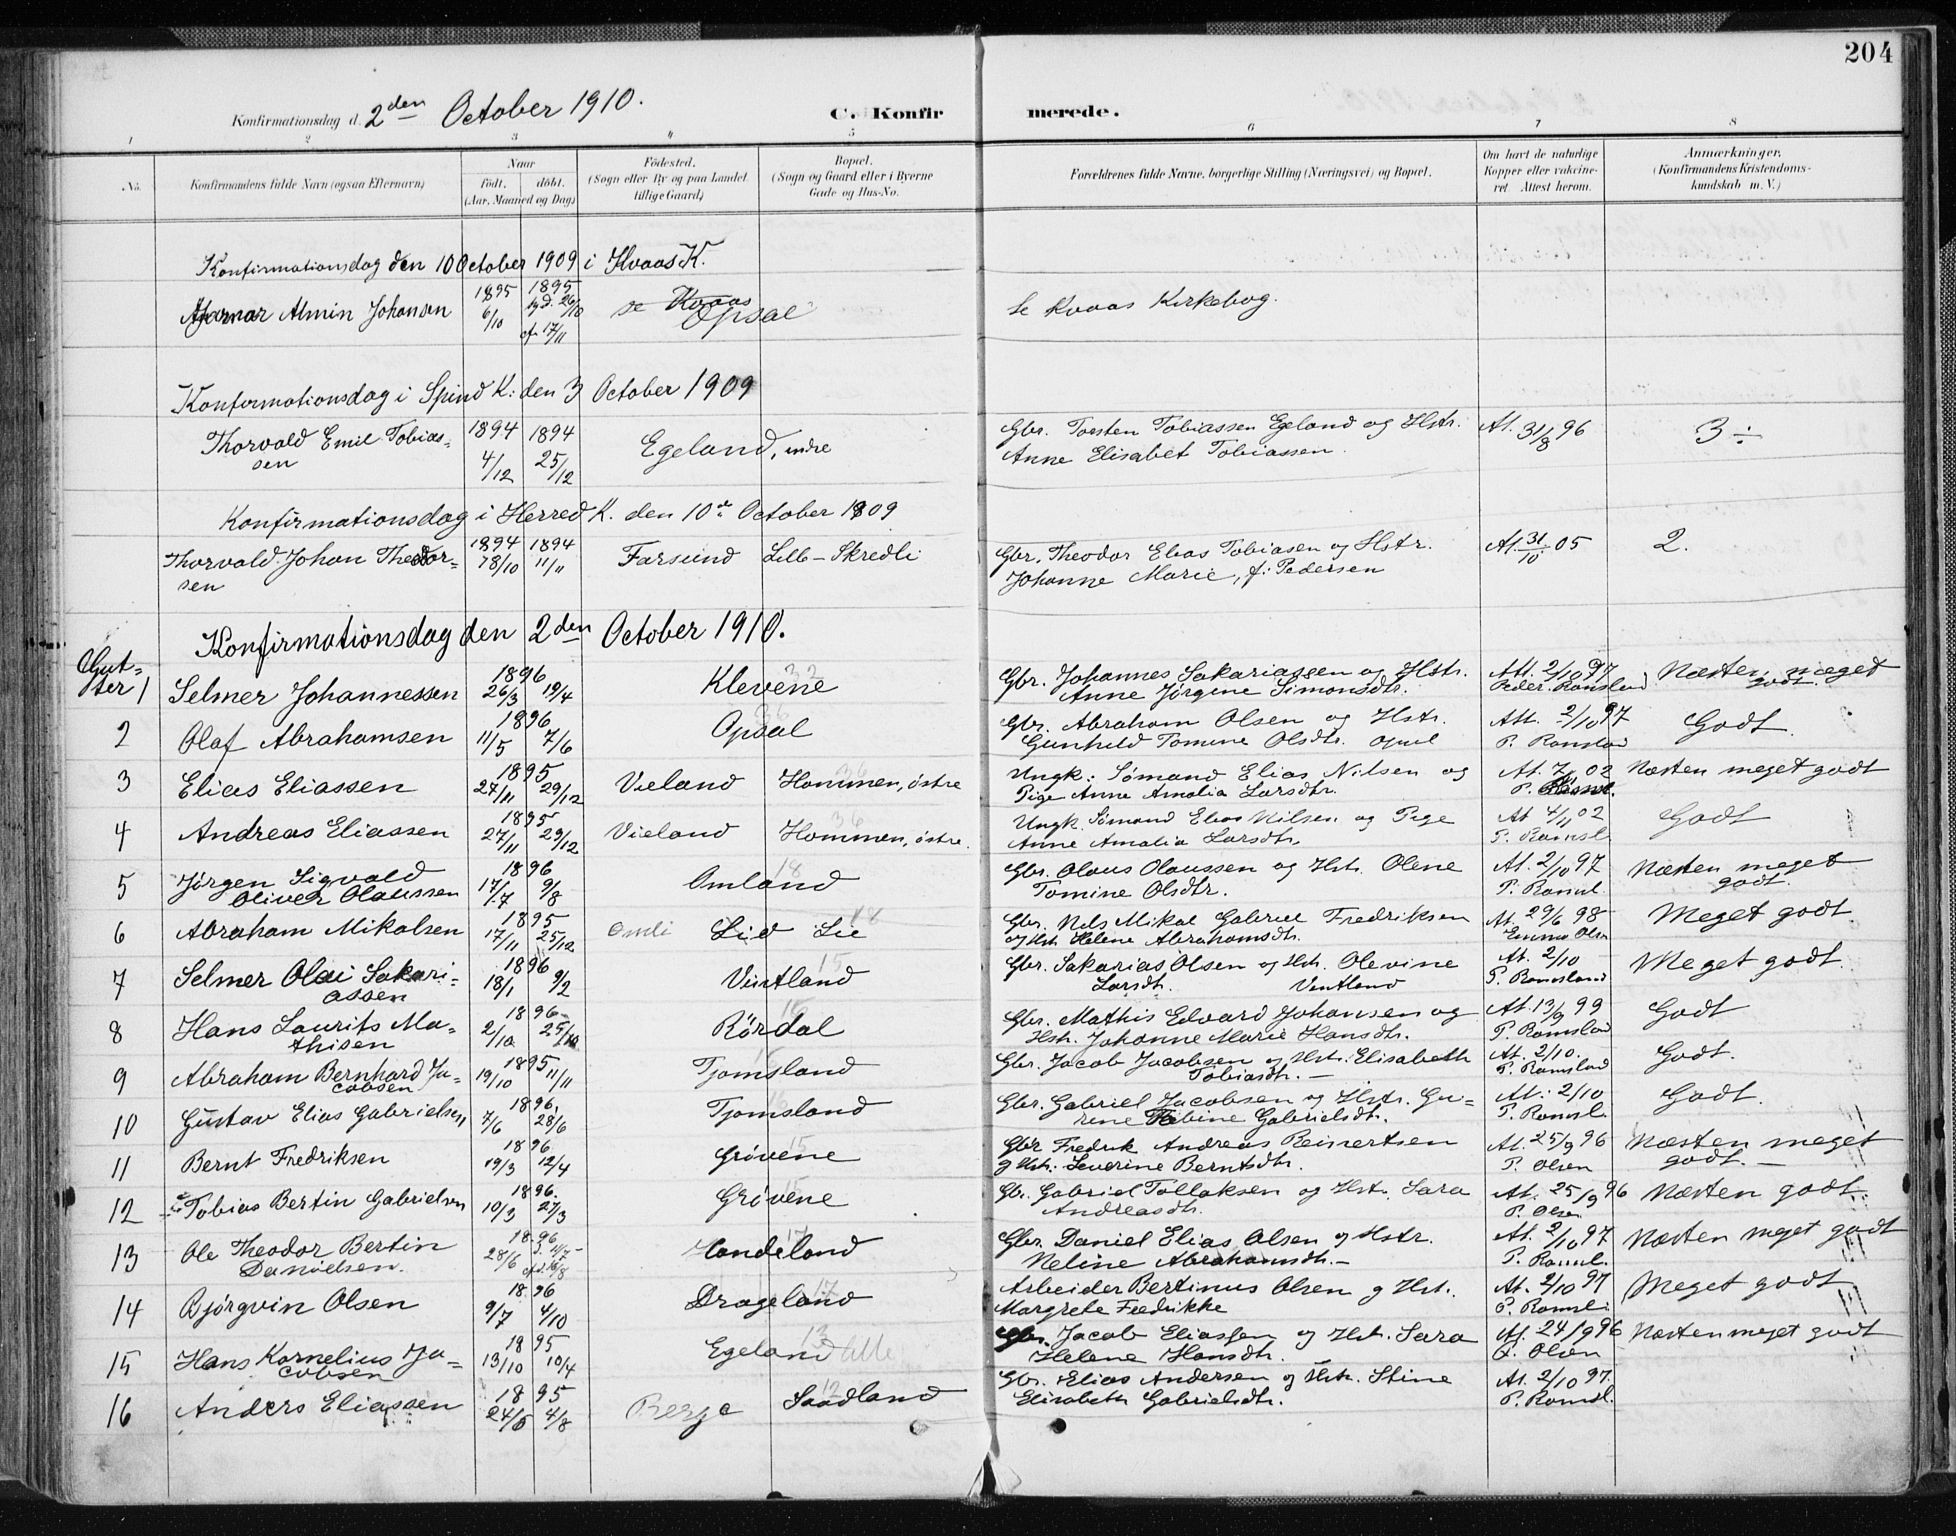 204
Konfirmationsdag d. 2den October 1910.
C. Konfirmerede.
1 2 3 4 5 6 7 8
No. Konfirmandens fulde Navn (ogsaa Efternavn) Naar født. døbt. (Aar, Maaned og Dag) Fødested. (Sogn eller By og paa Landet tillige Gaard) Bopæl. (Sogn og Gaard eller i Byerne Gade og Hus-No. Forældrenes fulde Navne, borgerlige Stilling (Næringsvei) og Bopæl. Om havt de naturlige Kopper eller vakcineret. Attest herom. Anmærkninger. (Konfirmandens Kristendomskundskab m. V.)
Konfirmationsdag den 10 October 1909 i Kvaas K.
Almin Johansen 1895 6/10 1895 26/10 17/11 se Kvaas Opsal se Kvaas Kirkebog.
Konfirmationsdag i Spind K: den 3 October 1909
Thorvald Emil Tobiassen 1894 4/12 1894 25/12 Egeland, indre Gbr. Torsten Tobiassen Egeland og Hstr. Anne Elisabet Tobiassen. At. 31/8 96 3 ÷
Konfirmationsdag i Herred K. den 10de October 1909
Thorvald Johan Theodorsen 1894 18/10 1894 11/11 Farsund Lille-Skredli Gbr. Theodor Elias Tobiasen og Hstr. Johanne Marie, f: Pedersen At. 31/10 05 2.
Konfirmationsdag den 2den October 1910.
Gutter
1 Selmer Johannessen 1896 26/3 19/4 Klevene 32 Gbr. Johannes Sakariassen og Hstr. Anne Jørgine Simonsdtr. Att. 2/10 97 Peder Romsland Næsten meget godt.
2 Olaf Abrahamsen 1896 11/5 7/6 Opsal Gbr. Abraham Olsen og Hstr. Gunhild Tomine Olsdtr. Opsal Att. 2/10 97 P. Romsland Godt.
3 Elias Eliassen 1895 27/11 29/12 Vieland Hommen, østre 36 Ungk: Sømand Elias Nilsen og Pige Anne Amalia Larsdtr. At. 7/11 02 P. Romsl. Næsten meget godt
4 Andreas Eliassen 1895 27/11 29/12 Vieland Hommen, østre. 36 Ungk. Sømand Elias Nilsen og Pige Anne Amalia Larsdtr. At 7/11 02 P. Romsl. Godt
5 Jørgen Sigvald Oliver Olaussen 1896 17/7 9/8 Omland 18 Gbr. Olaus Olaussen og Hstr. Olene Tomine Olsdtr. At. 2/10 97 P. Romsl. Næsten meget godt.
6 Abraham Mikalsen 1895 17/11 25/12 Omli Lie 18 Gbr. Nels Mikal Gabriel Fredriksen og Hstr. Helene Abrahamsdtr. At. 29/6 98 Emma Olsen Meget godt.
7 Selmer Olai Sakariassen 1896 18/1 9/2 Vintland 15 Gbr. Sakarias Olsen og Hstr. Olevine Larsdtr. Ventland At. 2/10 P. Romsland Meget godt.
8 Hans Laurits Mathisen 1896 2/10 25/10 Rördal 16 Gbr. Mathis Edvard Johansen og Hstr. Johanne Marie Hansdtr. At. 13/9 99 P. Romsland Godt
9 Abraham Bernhard Jacobsen 1895 19/10 11/11 Tjomsland Gbr. Jacob Jacobsen og Hstr. Elisabeth Tobiasdtr. — At. 2/10. P. Romsland Godt.
10 Gustav Elias Gabrielsen 1896. 7/6 28/6 Tjomsland Gbr. Gabriel Jacobsen og Hstr. Gurine Tobine Gabrielsdtr. At: 2/10 P. Romsl. Godt.
11 Bernt Fredriksen 1896 19/3 12/4 Grövene 15 Gbr Fredrik Andreas Reinertsen og Hstr: Severine Berntsdtr. At. 25/9 96 P. Olsen Næsten meget godt. —
12 Tobias Bertin Gabrielsen 1896. 10/3 27/3 Grövene 15 Gbr. Gabriel Tollaksen og Hstr. Sara Andreasdtr. At. 25/9 96 P. Olsen Næsten godt.
13 Ole Theodor Bertin Danielsen. 1896 28/6 Handeland 17 Gbr. Daniel Elias Olsen og Hstr. Neline Abrahamsdtr. — At. 2/10 97 P. Romsl. Næsten meget godt
14 Bjørgvin Olsen 1896 9/7 4/10 Drageland 17 Arbeider Bertinus Olsen og Hstr. Margrete Fredrikke At. 2/10 97 P. Romsl: Meget godt
15 Hans Kornelius Jacobsen 1895 13/10 10/4 Egeland 13 Gbr. Jacob Eliassen og Hstr. Sara Helene Hansdtr. At. 24/9 96 P. Olsen Næsten meget godt
16 Anders Eliassen 1895 24/6 4/8 Berge Saadland 12 Gbr. Elias Andersen og Hstr. Stine Elisabeth Gabrielsdtr. At. 2/10 97. P. Romsl.